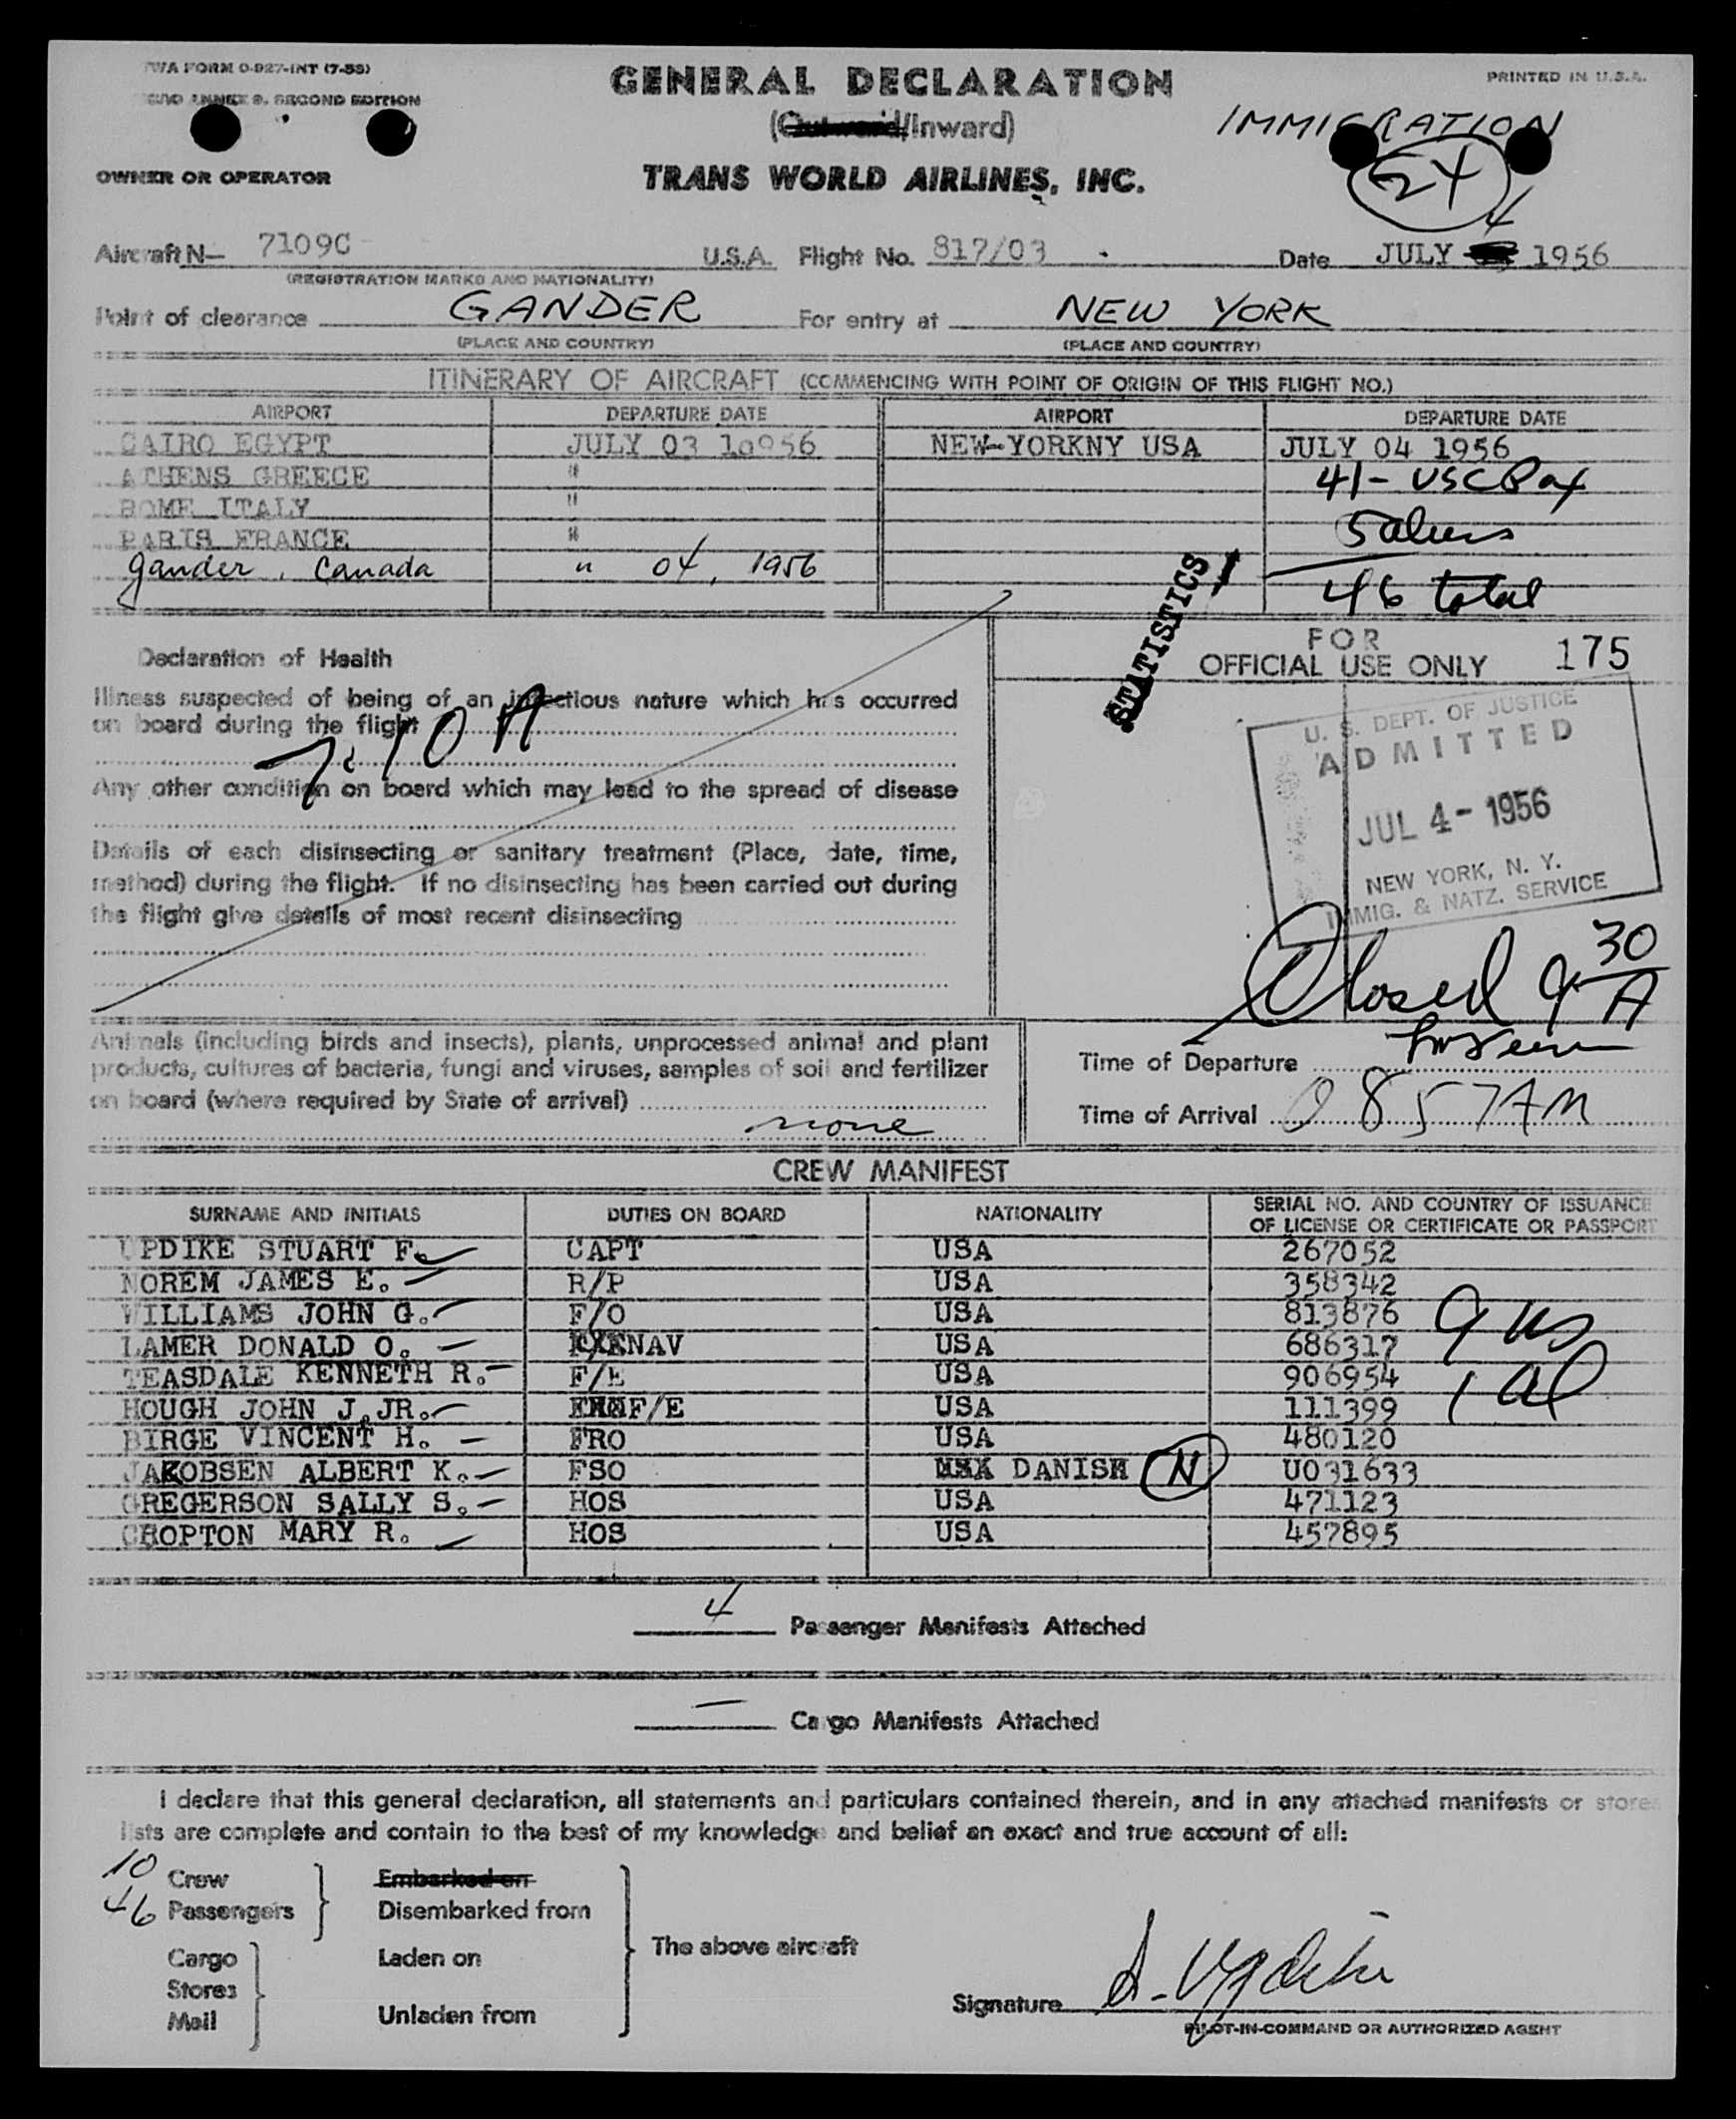 TWA FORM O-927-INT (7-55)
ICAO ANNEX 9, SECOND EDITION
GENERAL DECLARATION
PRINTED IN U.S.A.
(Outward/Inward)
IMMIGRATION
OWNER OR OPERATOR
TRANS WORLD AIRLINES, INC.
24
4
Aircraft N— 7109C U.S.A. Flight No. 817/03 Date JULY 1956
(REGISTRATION MARKS AND NATIONALITY)
Point of clearance GANDER For entry at NEW YORK
(PLACE AND COUNTRY) (PLACE AND COUNTRY)
ITINERARY OF AIRCRAFT (COMMENCING WITH POINT OF ORIGIN OF THIS FLIGHT NO.)
AIRPORT DEPARTURE DATE AIRPORT DEPARTURE DATE
CAIRO EGYPT JULY 03 10956 NEW-YORKNY USA JULY 04 1956
ATHENS GREECE " 41- USC Pax
ROME ITALY "
PARIS FRANCE " 5 aliens
Gander, Canada " 04, 1956
46 total
STATISTICS
FOR
OFFICIAL USE ONLY 175
Declaration of Health
Illness suspected of being of an infectious nature which has occurred
on board during the flight
7:10 A
Any other condition on board which may lead to the spread of disease
Details of each disinsecting or sanitary treatment (Place, date, time,
method) during the flight. If no disinsecting has been carried out during
the flight give details of most recent disinsecting
U. S. DEPT. OF JUSTICE
ADMITTED
JUL 4- 1956
NEW YORK, N. Y.
IMMIG. & NATZ. SERVICE
Closed 9 30 A
Animals (including birds and insects), plants, unprocessed animal and plant
products, cultures of bacteria, fungi and viruses, samples of soil and fertilizer
on board (where required by State of arrival)
none
Time of Departure
Time of Arrival 0857AM
CREW MANIFEST
SURNAME AND INITIALS DUTIES ON BOARD NATIONALITY SERIAL NO. AND COUNTRY OF ISSUANCE
OF LICENSE OR CERTIFICATE OR PASSPORT
UPDIKE STUART F. CAPT USA 267052
NOREM JAMES E. R/P USA 358342
WILLIAMS JOHN G. F/O USA 813876
LAMER DONALD O. NAV USA 686317
TEASDALE KENNETH R. F/E USA 906954
HOUGH JOHN J.JR. F/E USA 111399
BIRGE VINCENT H. FRO USA 480120
JAKOBSEN ALBERT K. FSO DANISH N U031633
GREGERSON SALLY S. HOS USA 471123
CROPTON MARY R. HOS USA 457895
9 US
1 al
4 Passenger Manifests Attached
— Cargo Manifests Attached
I declare that this general declaration, all statements and particulars contained therein, and in any attached manifests or stores
lists are complete and contain to the best of my knowledge and belief an exact and true account of all:
10 Crew Embarked on
46 Passengers Disembarked from
The above aircraft
Cargo Laden on
Stores
Mail Unladen from
Signature S. Updike
PILOT-IN-COMMAND OR AUTHORIZED AGENT